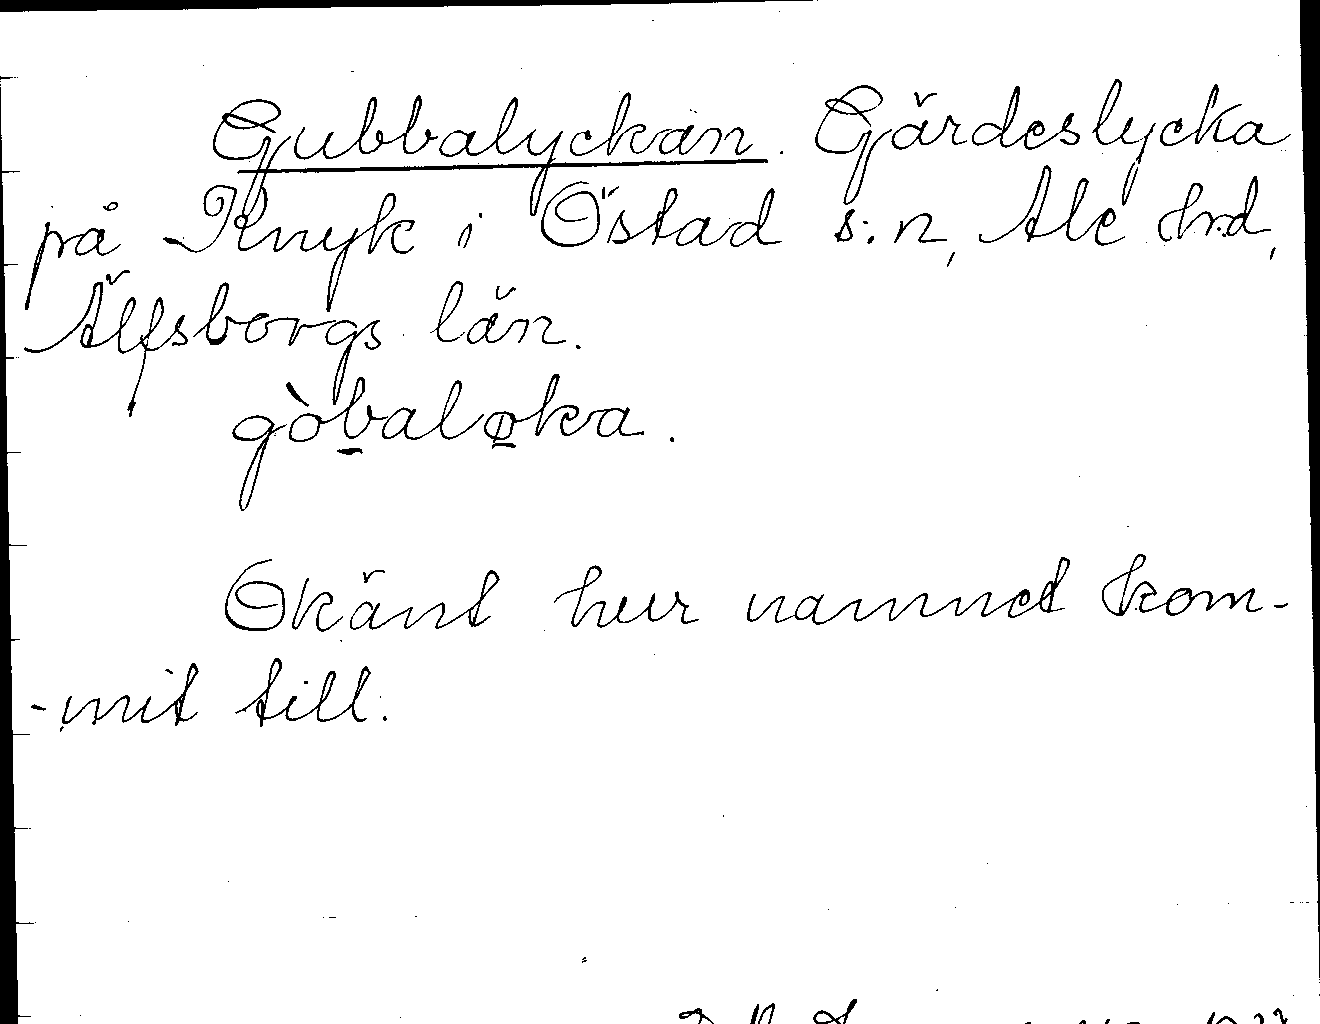 Gubbalyckan. Gärdeslycka
på Knyk i Östad s:n, Ale hrd,
Älfsborgs län.
gòbaløka.
Okänt hur namnet kom-
-mit till.